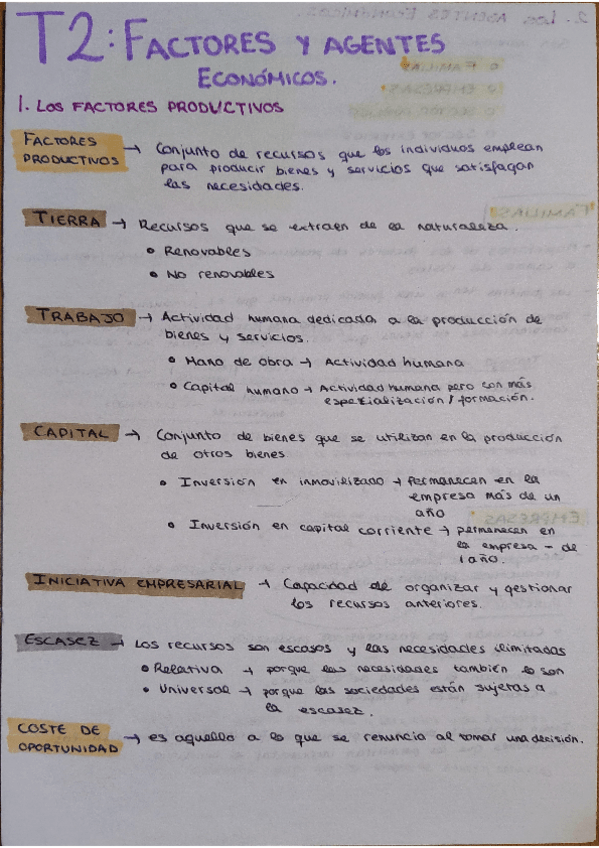 T2: FACTORES Y AGENTES
ECONÓMICOS.
1. LOS FACTORES PRODUCTIVOS
FACTORES
PRODUCTIVOS → Conjunto de recursos que los individuos emplean
para producir bienes y servicios que satisfagan
las necesidades.
TIERRA → Recursos que se extraen de la naturaleza.
• Renovables
• No renovables
TRABAJO → Actividad humana dedicada a la producción de
bienes y servicios.
• Mano de obra → Actividad humana
• Capital humano → Actividad humana pero con más
espezialización / formación.
CAPITAL → Conjunto de bienes que se utilizan en la producción
de otros bienes
• Inversión en inmovilizado → Permanecen en la
empresa más de un
año
• Inversión en capital corriente → permanecen en
la empresa - de
1 año.
INICIATIVA EMPRESARIAL → Capacidad de organizar y gestionar
los recursos anteriores.
ESCASEZ → Los recursos son escasos y las necesidades ilimitadas
• Relativa → porque las necesidades también lo son
• Universal → porque las sociedades están sujetas a
la escasez.
COSTE DE
OPORTUNIDAD → es aquello a lo que se renuncia al tomar una decisión.